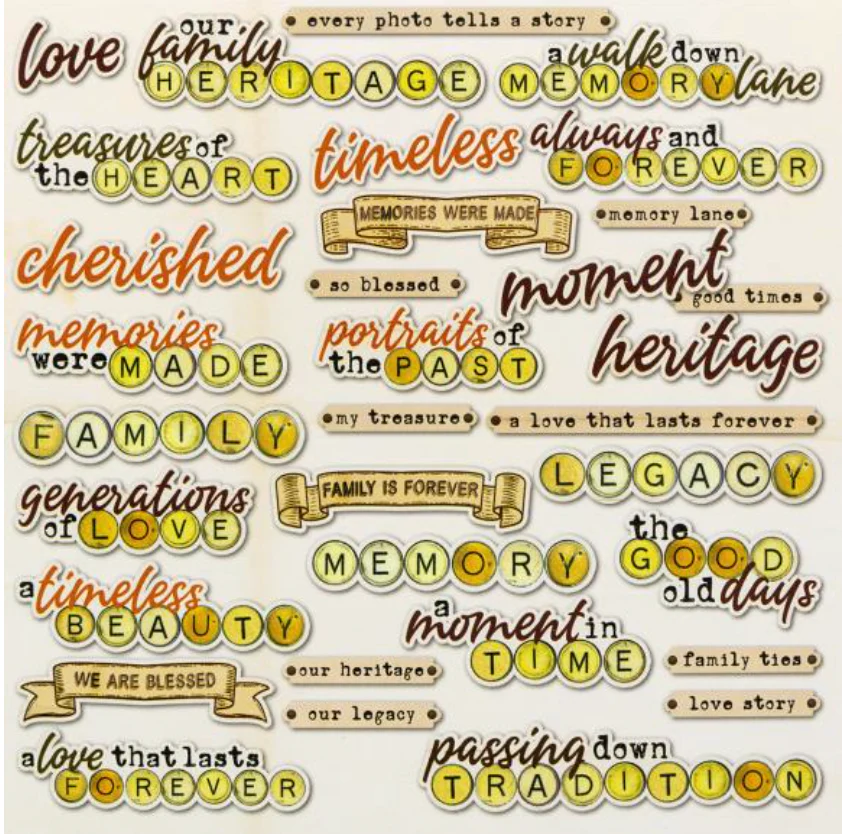 love
our
family
HERITAGE
every photo tells a story
a walk down
MEMORY lane
treasures of
the HEART
timeless
always and
FOREVER
MEMORIES WERE MADE
memory lane
cherished
so blessed
moment
good times
memories
were MADE
portraits of
the PAST
heritage
FAMILY
my treasure
a love that lasts forever
generations
of LOVE
FAMILY IS FOREVER
LEGACY
MEMORY
the
GOOD
old days
a timeless
BEAUTY
a
moment in
TIME
WE ARE BLESSED
our heritage
family ties
our legacy
love story
a love that lasts
FOREVER
passing down
TRADITION